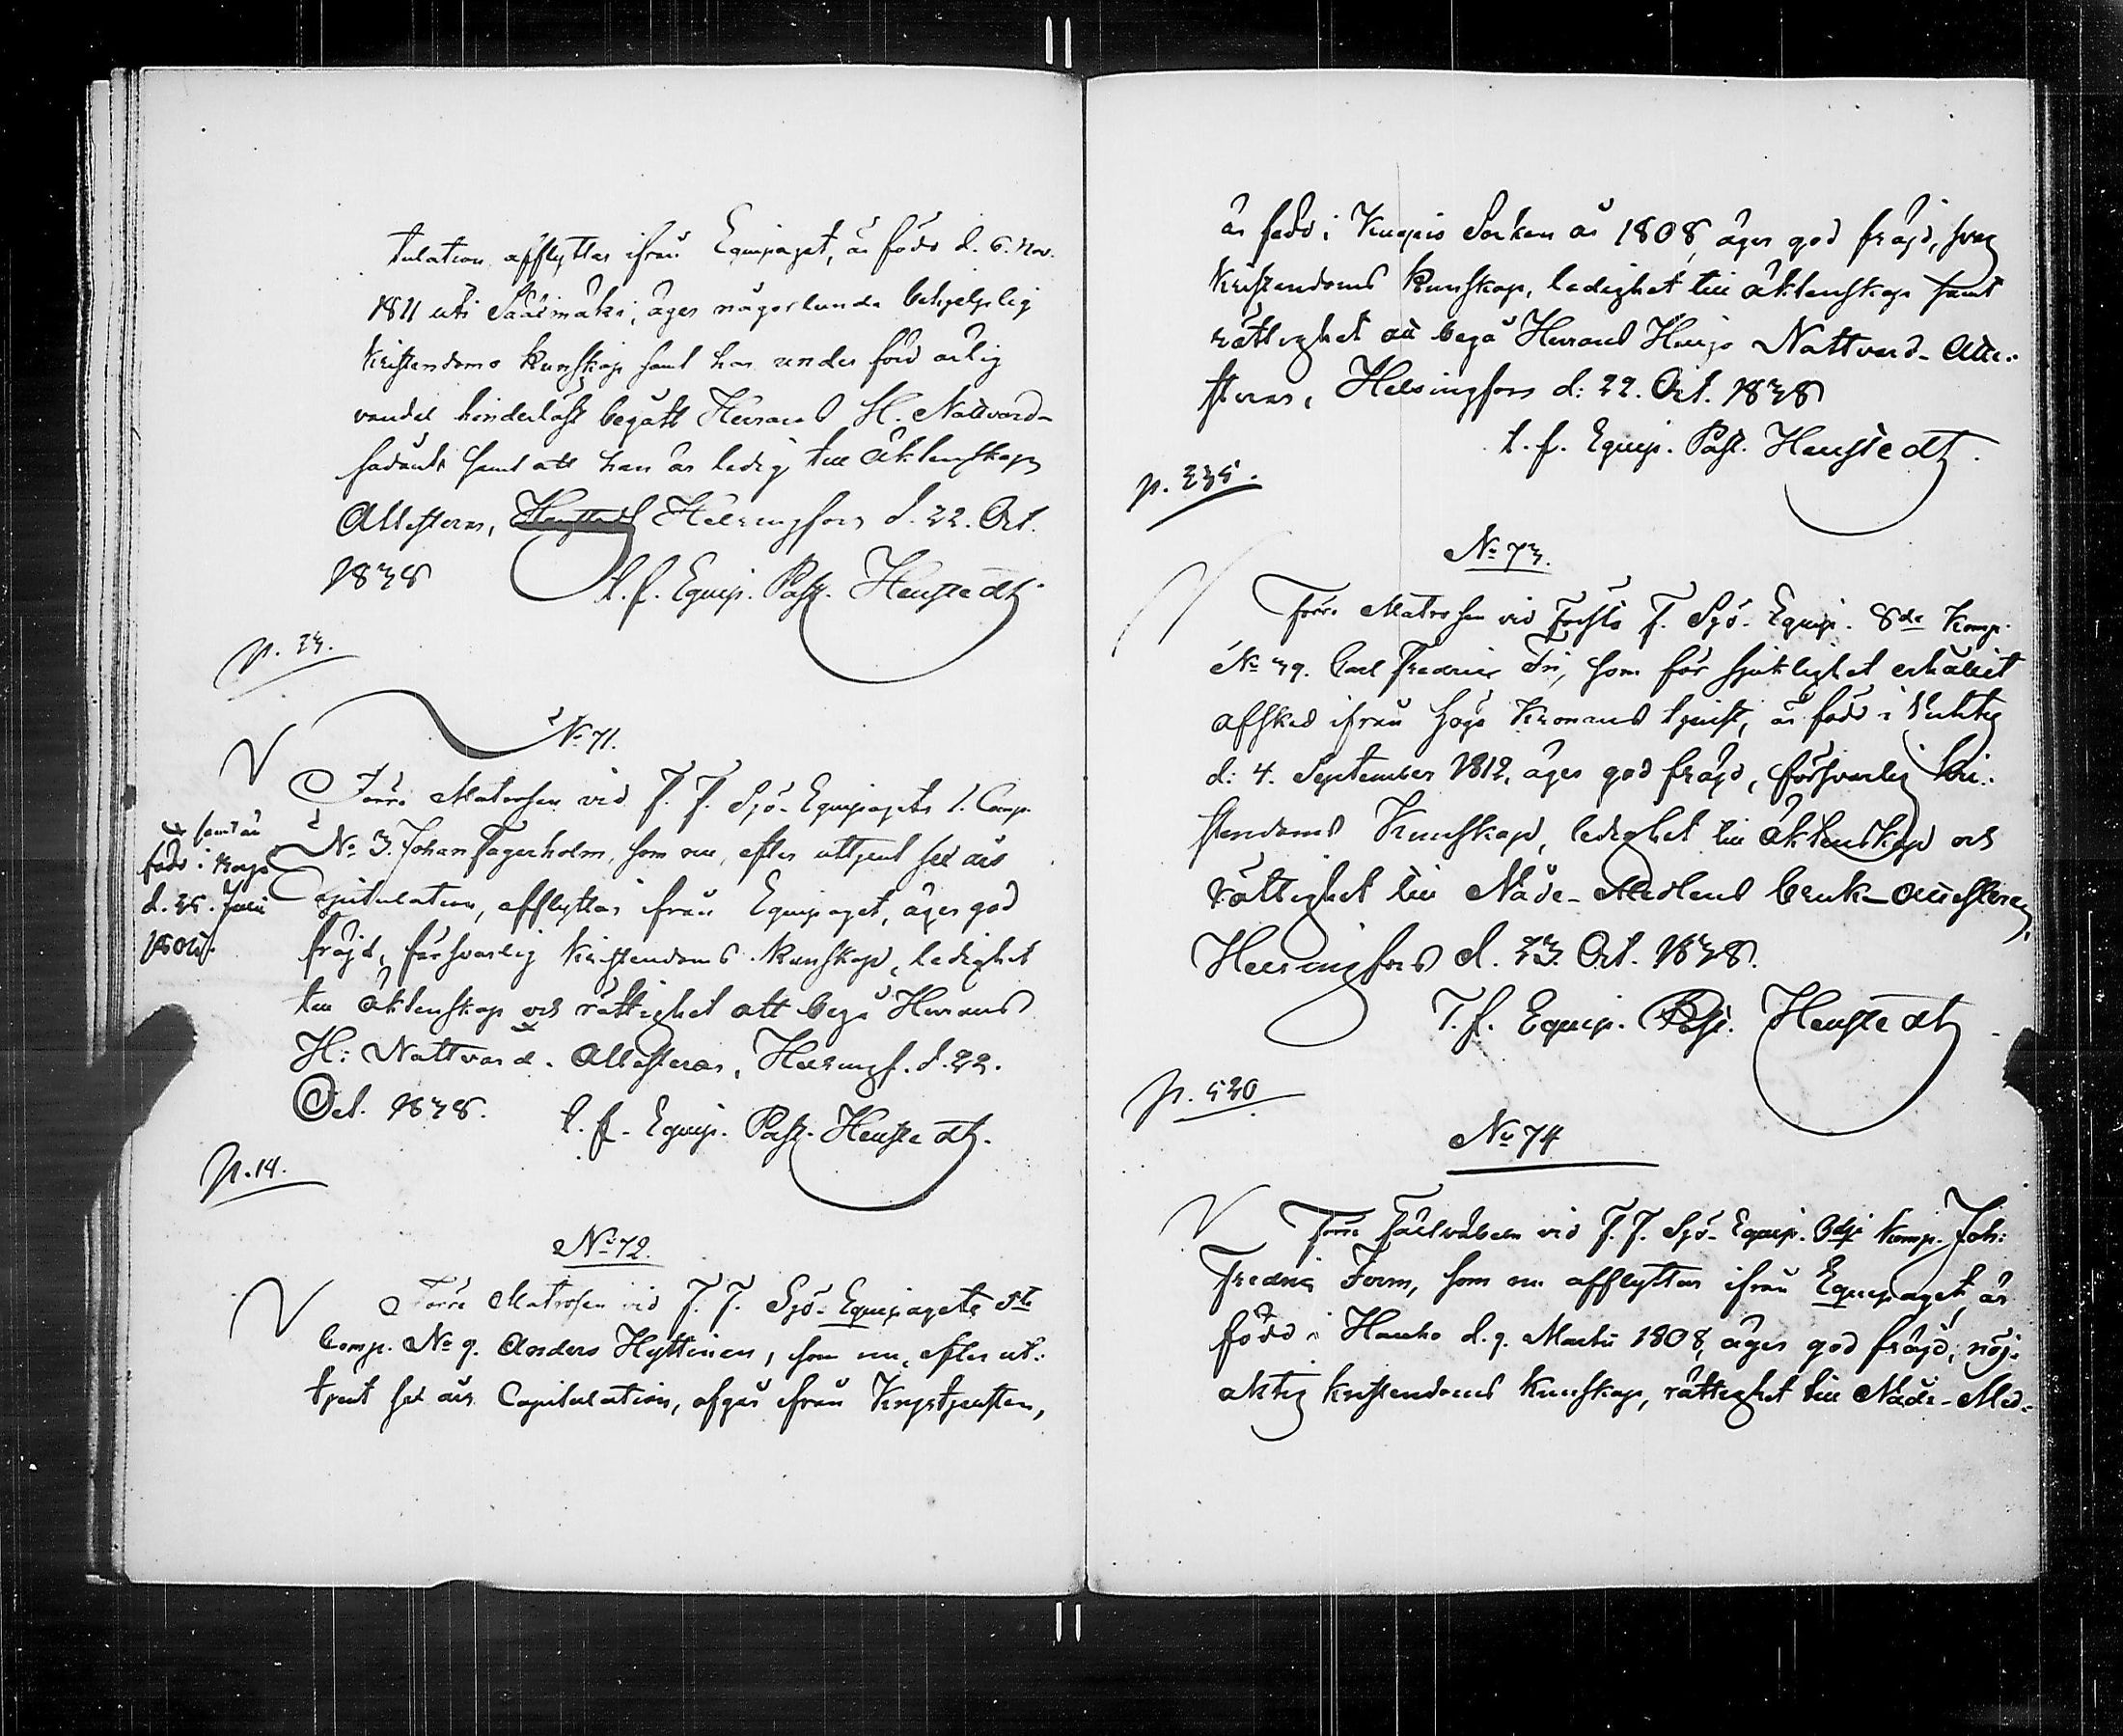 tulation afflyttar ifrån Equipaget, är född d. 6. Nov.
1811 uti Säärmäki, äger någorlunda behjelplig
Kristendoms Kunskap samt har under förd ärlig
vandel hinderlöst begått Herrans H. Nattvard-
sådant samt att han är ledig till Äktenskap
Attesteras, Helsingfors d. 22. Oct.
1838
t. f. Equip. Past. Henstedt
p. 23.
No 71.
Förre Matrosen vid F. F. Sjö-Equipagets 1. Comp.
No 3. Johan Fagerholm, som nu, efter uttjent sex års
Capitulation, afflyttar ifrån Equipaget, äger god
fräjd, försvarlig Kristendoms Kunskap, ledighet
till äktenskap och rättighet att begå Herrans
H: Nattvard. Attesteras, Helsingf. d. 22.
Oct. 1838.
t. f. Equip. Past. Henstedt.
samt är
född i
d. 25. Juli
p. 14.
No 72.
Förre Matrosen vid F. F. Sjö-Equipagets 5te
Comp. No 9. Anders Hyttinen, som nu, efter ut:
tjent sex års Capitulation, afgår ifrån Krigstjensten,
är född i Kuopio Socken år 1808, äger god fräjd, svag
Kristendoms Kunskap, ledighet till äktenskap samt
rättighet att begå Herrans Heliga Nattvard- Atte:
steras, Helsingfors d: 22. Oct. 1838
t. f. Equip. Past. Henstedt.
p. 235.
No 73.
Förre Matrosen vid Första F. Sjö-Equip. 8de Komp.
No 39. Carl Fredric Fri, som för sjuklighet erhållit
afsked ifrån höga Kronans tjenst, är född i
d: 4. September 1812, äger god fräjd, försvarlig Kri:
stendoms Kunskap, ledighet till äktenskap och
rättighet till Nåde-Medlens bruk- Attesteras,
Helsingfors d. 23. Oct. 1838.
T. f. Equip. Past. Henstedt
p. 520
No 74
Förre vid F. F. Sjö-Equip. 3dje Komp. Joh:
Fredric Form, som nu afflyttar ifrån Equipaget, är
född i Hauho d. 9. Martii 1808, äger god fräjd, nöj-
aktig kristendoms Kunskap, rättighet till Nåde-Med-